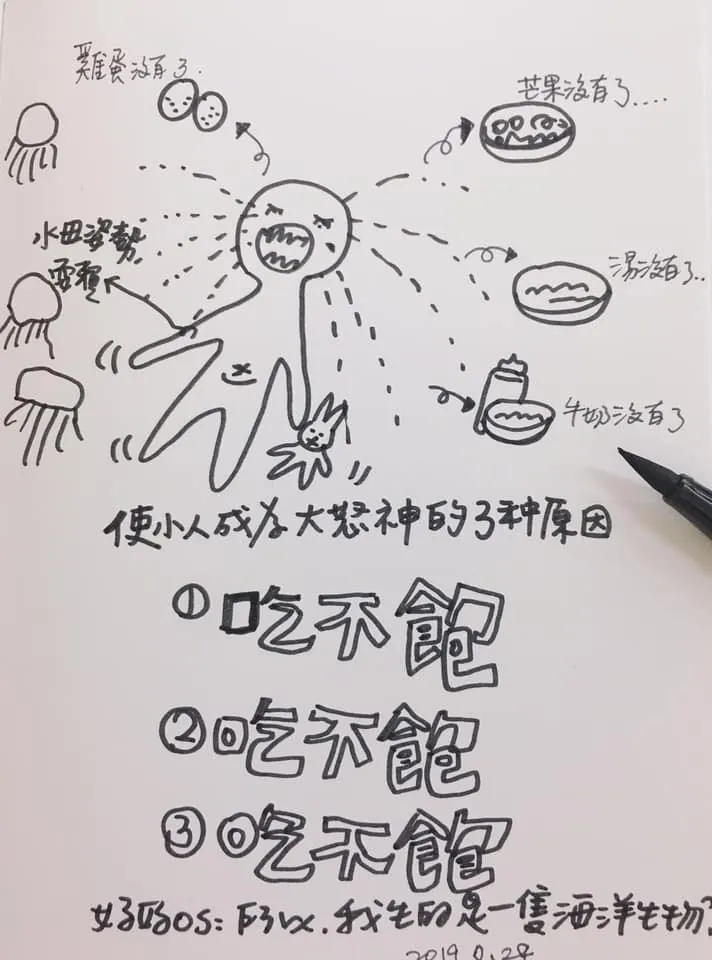 雞蛋沒有了.
芒果沒有了....
水母姿勢
耍賴
湯沒有了..
牛奶沒有了
使小人成為大怒神的3種原因
①吃不飽
②吃不飽
③吃不飽
OS: 所以.我生的是一隻海洋生物?
2019